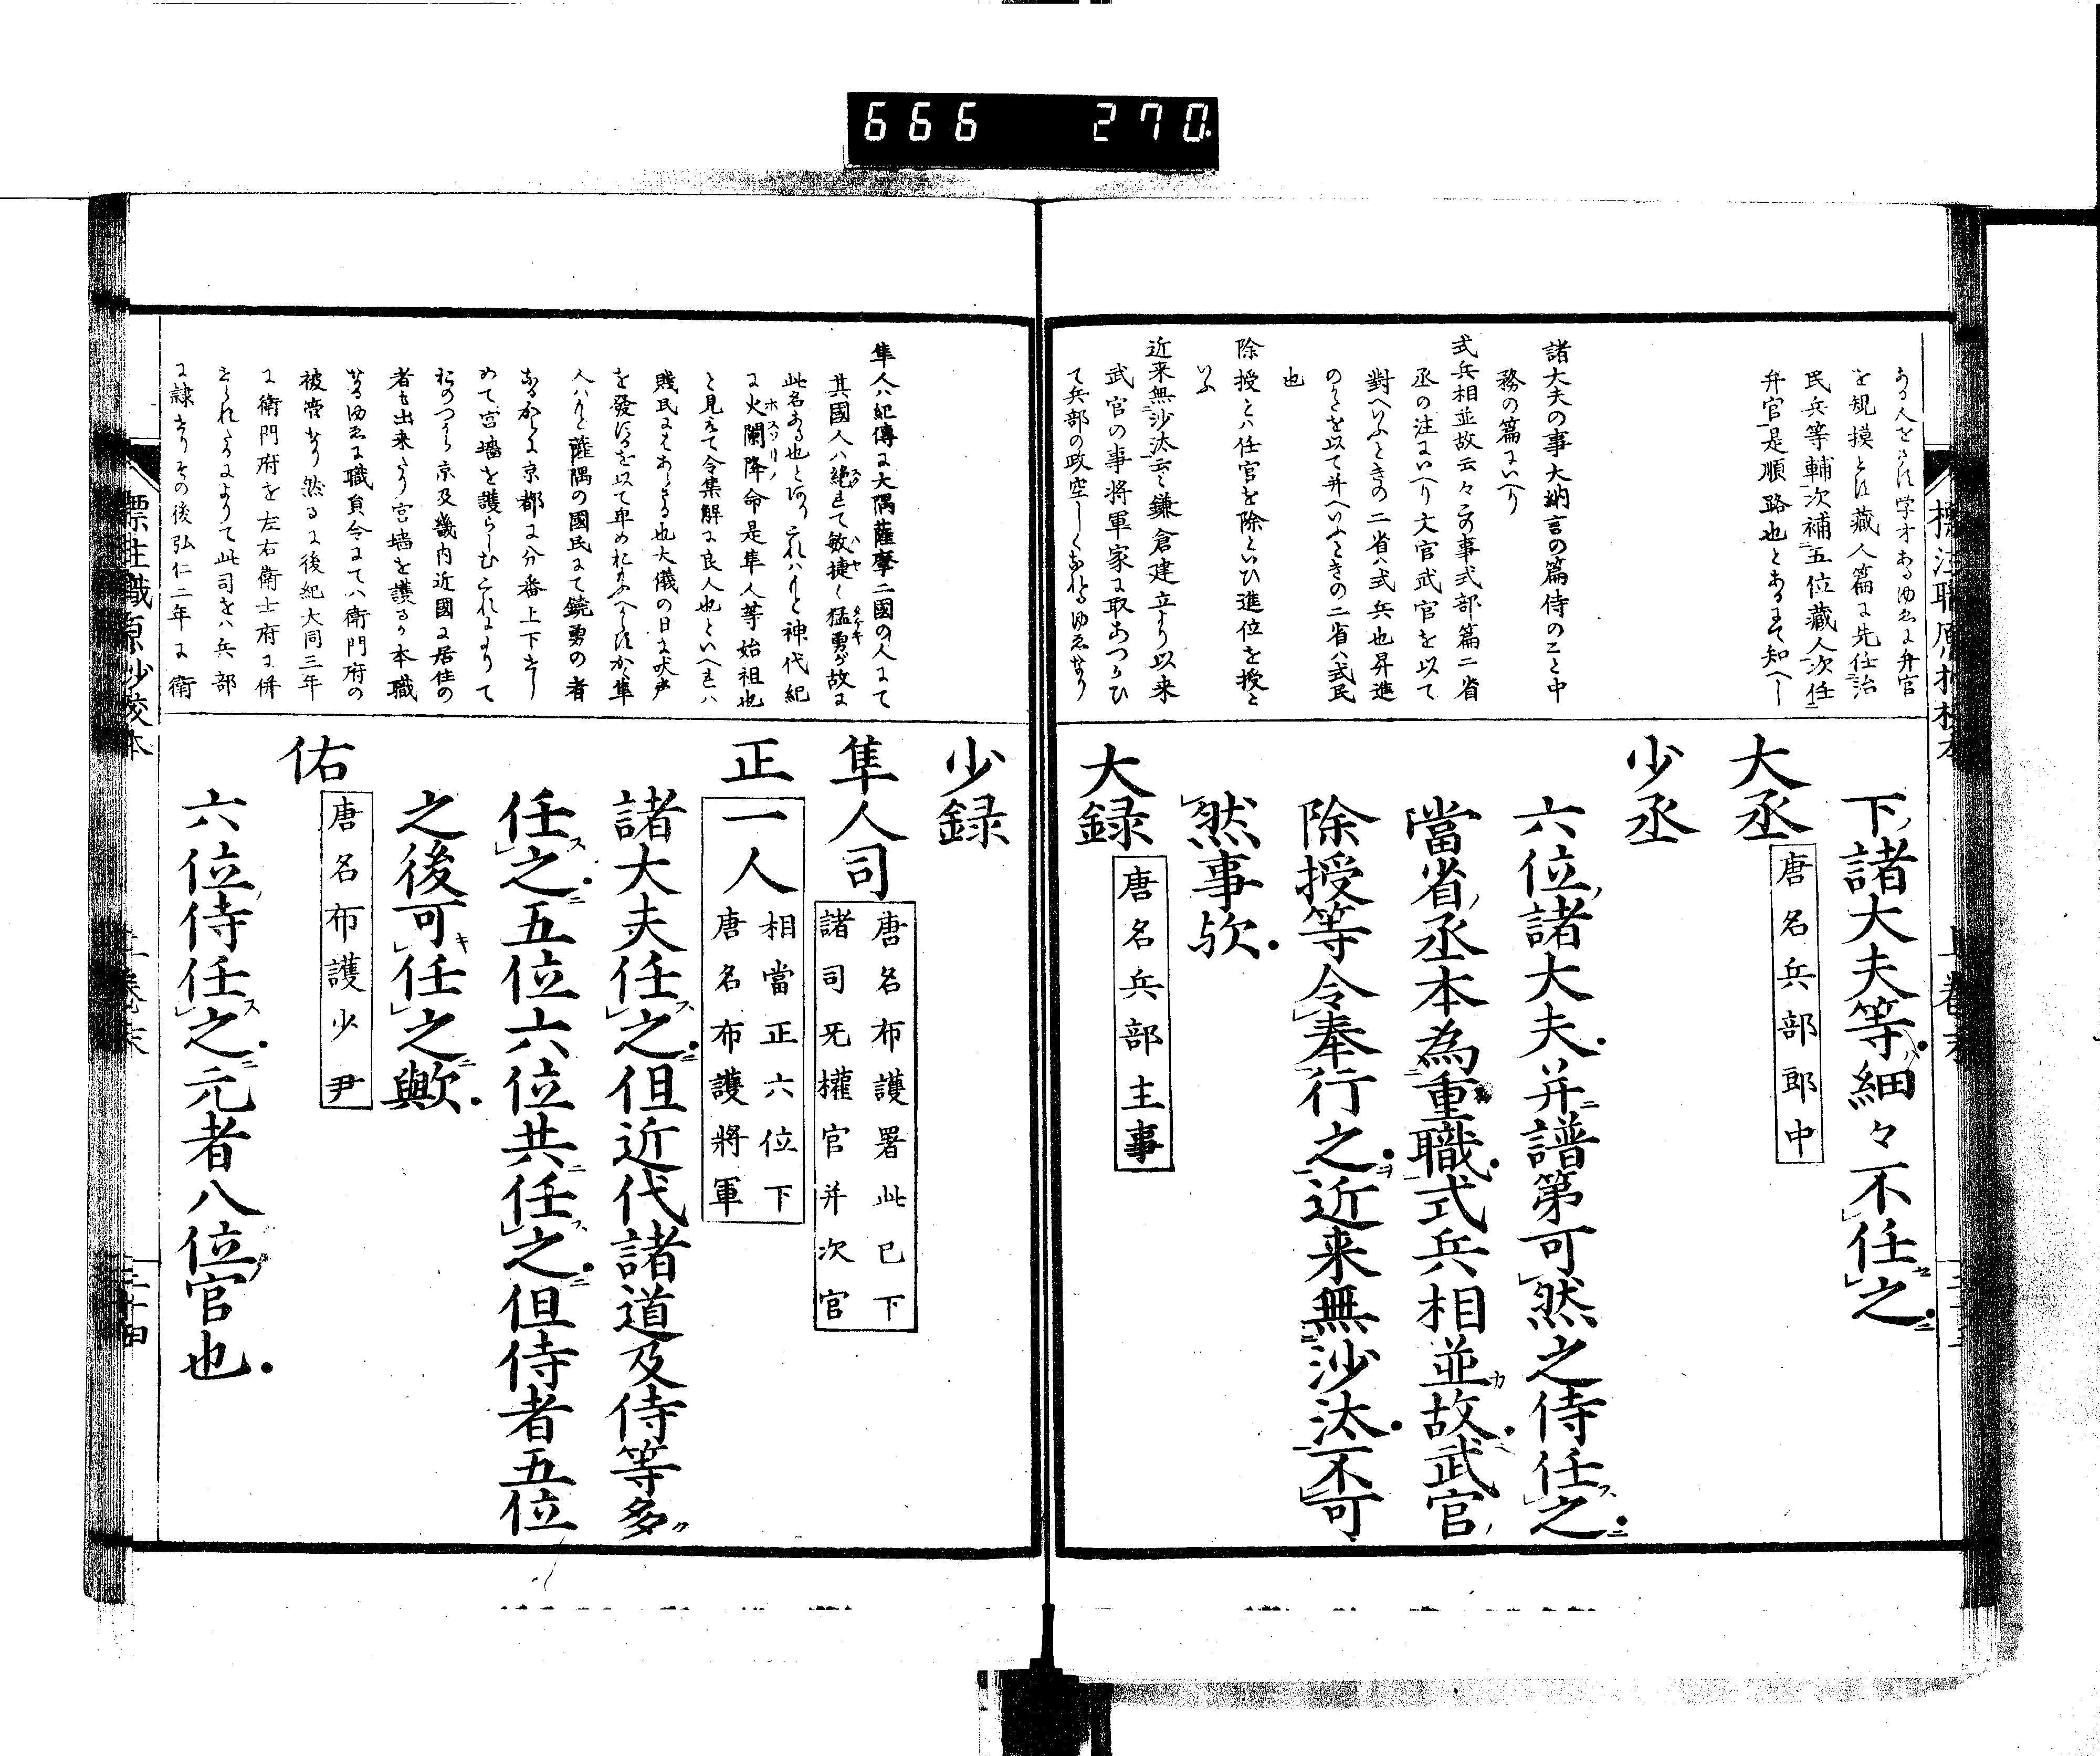 666 270
ある人をさす学才あるゆゑに弁官
を規摸とす藏人篇に先任治
民兵等輔次補五位藏人次任
弁官是順路也とあるにて知へし
諸大夫の事大納言の篇侍のこと中
務の篇にいへり
式兵相並故云々この事式部篇二省
丞の注にいへり文官武官を以て
對へいふときの二省ハ式兵也昇進
のかたを以て并へいふときの二省ハ式民
也
除授とハ任官を除といひ進位を授と
いふ
近来無沙汰云々鎌倉建立より以来
武官の事将軍家に取あつかひ
て兵部の政空しくなれるゆゑなり
下諸大夫等細々不任之
大丞
唐名兵部郎中
少丞
六位諸大夫并譜第可然之侍任之
當省丞本為重職式兵相並故武官
除授等令奉行之近来無沙汰不可
然事欤
大録
唐名兵部主事
隼人ハ紀傳に大隅薩摩二國の人にて
其國人ハ絶れて敏捷く猛勇が故に
此名ある也とあり これハもと神代紀
に火闌降命是隼人等始祖也
と見えて令集解に良人也といへれハ
賤民にはあらさる也大儀の日に吠声
を發するを以て卑めれおもへらるゝか隼
人ハもと薩隅の國民にて鋭勇の者
なるかゆゑに京都に分番上下せし
めて宮墻を護らしむこれによりて
おのつから京及畿内近國に居住の
者も出来たり宮墻を護るか本職
なるゆゑに職員令にてハ衛門府の
被管なり然るに後紀大同三年
に衛門府を左右衛士府に併
せられたるによりて此司をハ兵部
に隷せりその後弘仁二年に衛
少録
隼人司
唐名布護署此已下
諸司无權官并次官
正
一人
相當正六位下
唐名布護將軍
諸大夫任之但近代諸道及侍等多
任之五位六位共任之但侍者五位
之後可任之歟
佑
唐名布護少尹
六位侍任之元者八位官也
標註職原抄校本
上巻末
三十四